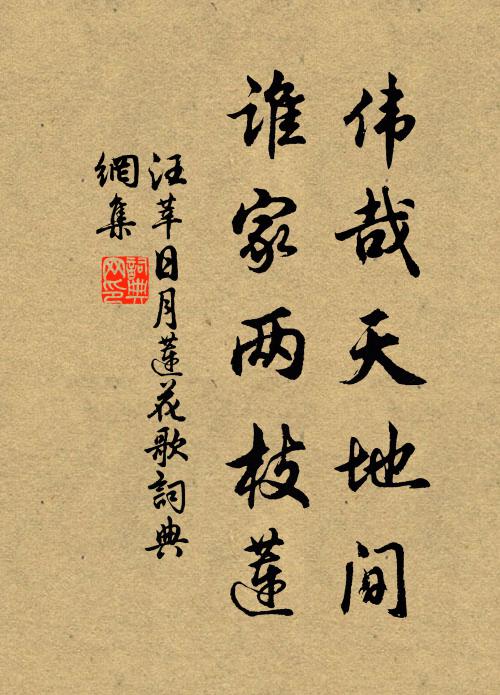 伟哉天地间
谁家两枝莲
汪莘日月莲花歌詞典
網集
詞典网印